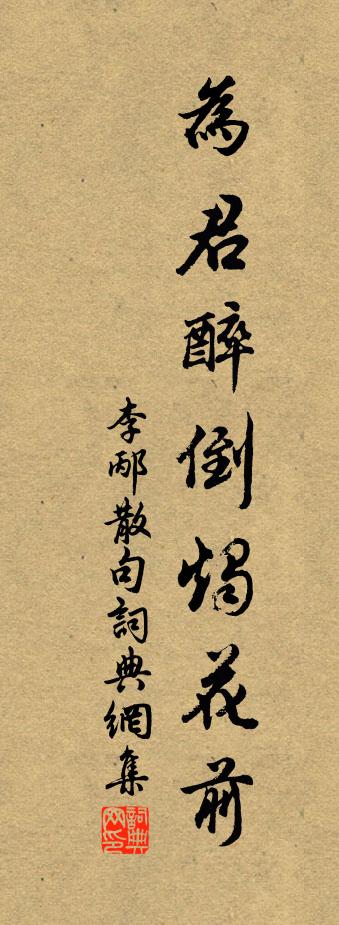 為君醉倒燭花前
李邴散句詞典網集
詞典網印